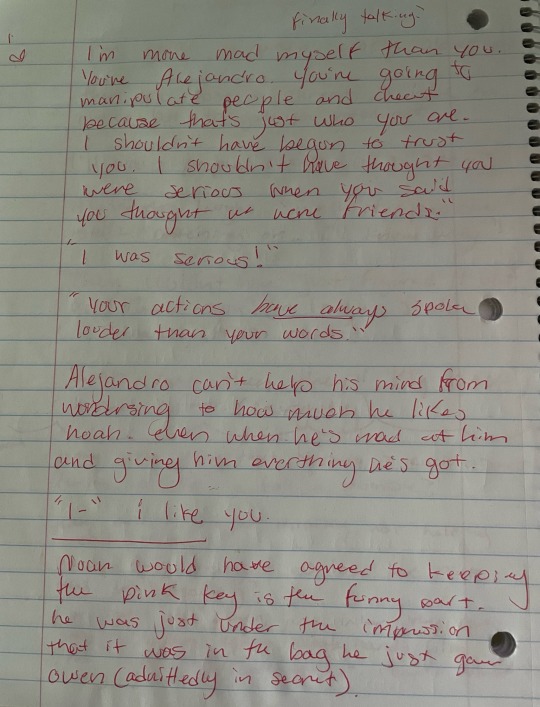 finally talking.
I'm more mad myself than you.
You're Alejandro. You're going to
manipulate people and cheat
because that's just who you are.
I shouldn't have begun to trust
you. I shouldn't have thought you
were serious when you said
you thought we were friends."
"I was serious!"
"Your actions have always spoke
louder than your words."
Alejandro can't help his mind from
wondersing to how much he likes
noah. Even when he's mad at him
and giving him everthing he's got.
"I-" i like you.
Noah would have agreed to keeping
the pink key is the funny part.
he was just under the impression
that it was in the bag he just gave
Owen (aduittedly in secret).